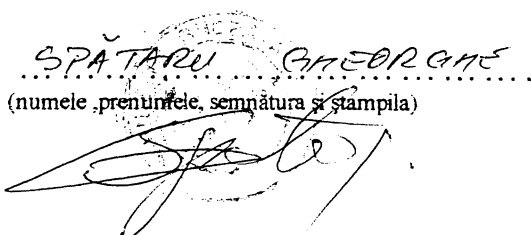 SPĂTARU GHEORGHE
(numele ,prenumele, semnătura și ștampila)